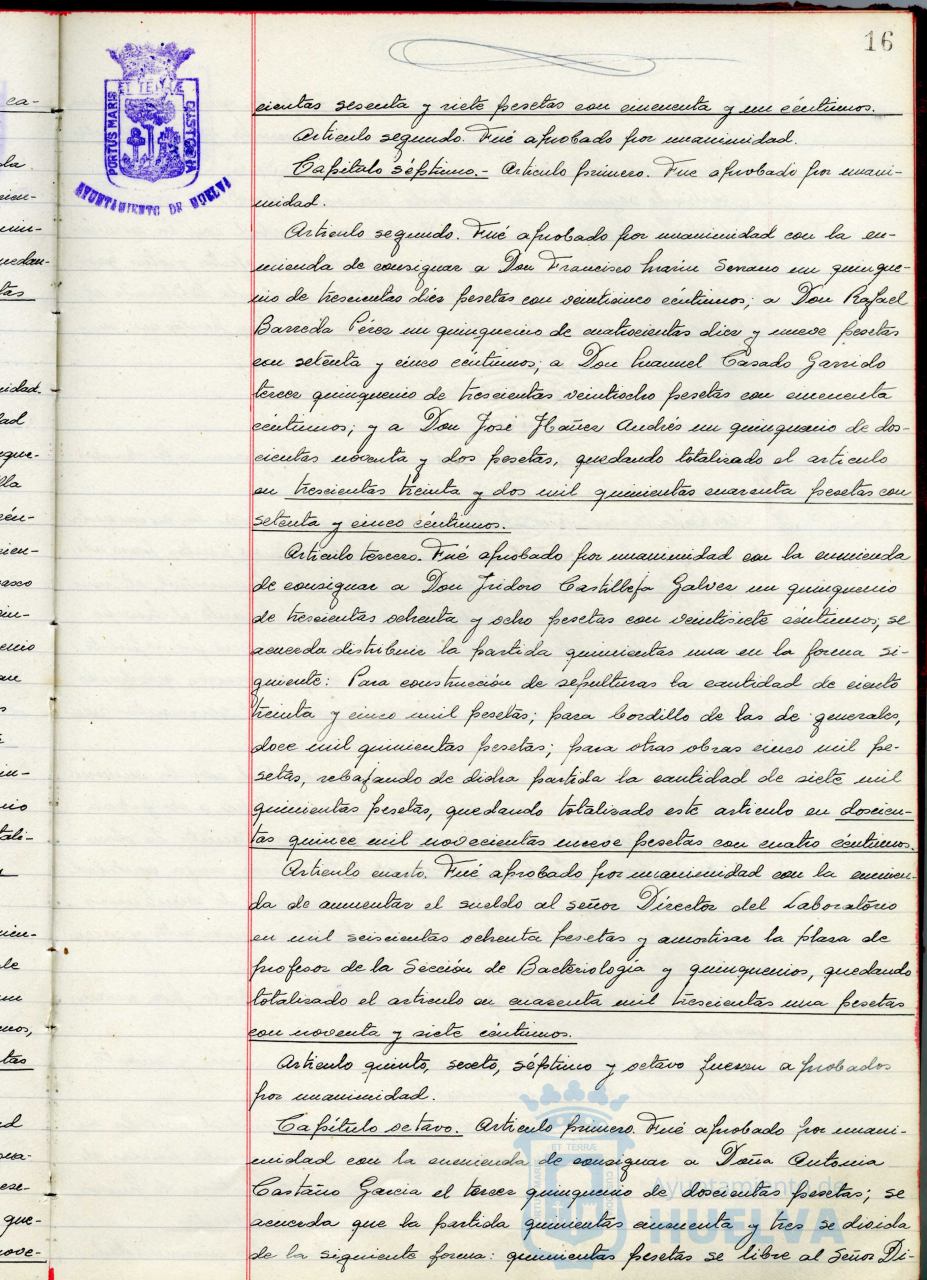 16
PORTUS MARIS
ET TERRÆ
CUSTODIA
AYUNTAMIENTO DE HUELVA
cientas sesenta y siete pesetas con cincuenta y un céntimos.
Artículo segundo. Fué aprobado por unanimidad.
Capítulo séptimo.- Artículo primero. Fue aprobado por unani-
midad.
Artículo segundo. Fué aprobado por unanimidad con la en-
mienda de consignar a Don Francisco Marin Serrano un quinque-
nio de trescientas diez pesetas con veinticinco céntimos; a Don Rafael
Barreda Pérez un quinquenio de cuatrocientas diez y nueve pesetas
con setenta y cinco céntimos; a Don Manuel Casado Garrido
tercer quinquenio de trescientas veintiocho pesetas con cincuenta
céntimos; y a Don José Ibañez Andrés un quinquenio de dos-
cientas noventa y dos pesetas, quedando totalizado el artículo
en trescientas treinta y dos mil quinientas cuarenta pesetas con
setenta y cinco céntimos.
Artículo tercero. Fué aprobado por unanimidad con la enmienda
de consignar a Don Isidoro Castilleja Galvez un quinquenio
de trescientas ochenta y ocho pesetas con veintisiete céntimos; se
acuerda distribuir la partida quinientas una en la forma si-
guiente: Para construcción de sepulturas la cantidad de ciento
treinta y cinco mil pesetas; para bordillo de las de generales,
doce mil quinientas pesetas; para otras obras cinco mil pe-
setas, rebajando de dicha partida la cantidad de siete mil
quinientas pesetas, quedando totalizado este artículo en doscien-
tas quince mil novecientas nueve pesetas con cuatro céntimos.
Artículo cuarto. Fué aprobado por unanimidad con la enmien-
da de aumentar el sueldo al señor Director del Laboratorio
en mil seiscientas ochenta pesetas y amortizar la plaza de
profesor de la Sección de Bacteriología y quinquenios, quedando
totalizado el artículo en cuarenta mil trescientas una pesetas
con noventa y siete céntimos.
Artículo quinto, sexto, séptimo y octavo fueron aprobados
por unanimidad.
Capítulo octavo. Artículo primero. Fué aprobado por unani-
midad con la enmienda de consignar a Doña Antonia
Castaño Garcia el tercer quinquenio de doscientas pesetas; se
acuerda que la partida quinientas cuarenta y tres se divida
de la siguiente forma: quinientas pesetas se libre al Señor Di-
Ayuntamiento de
HUELVA